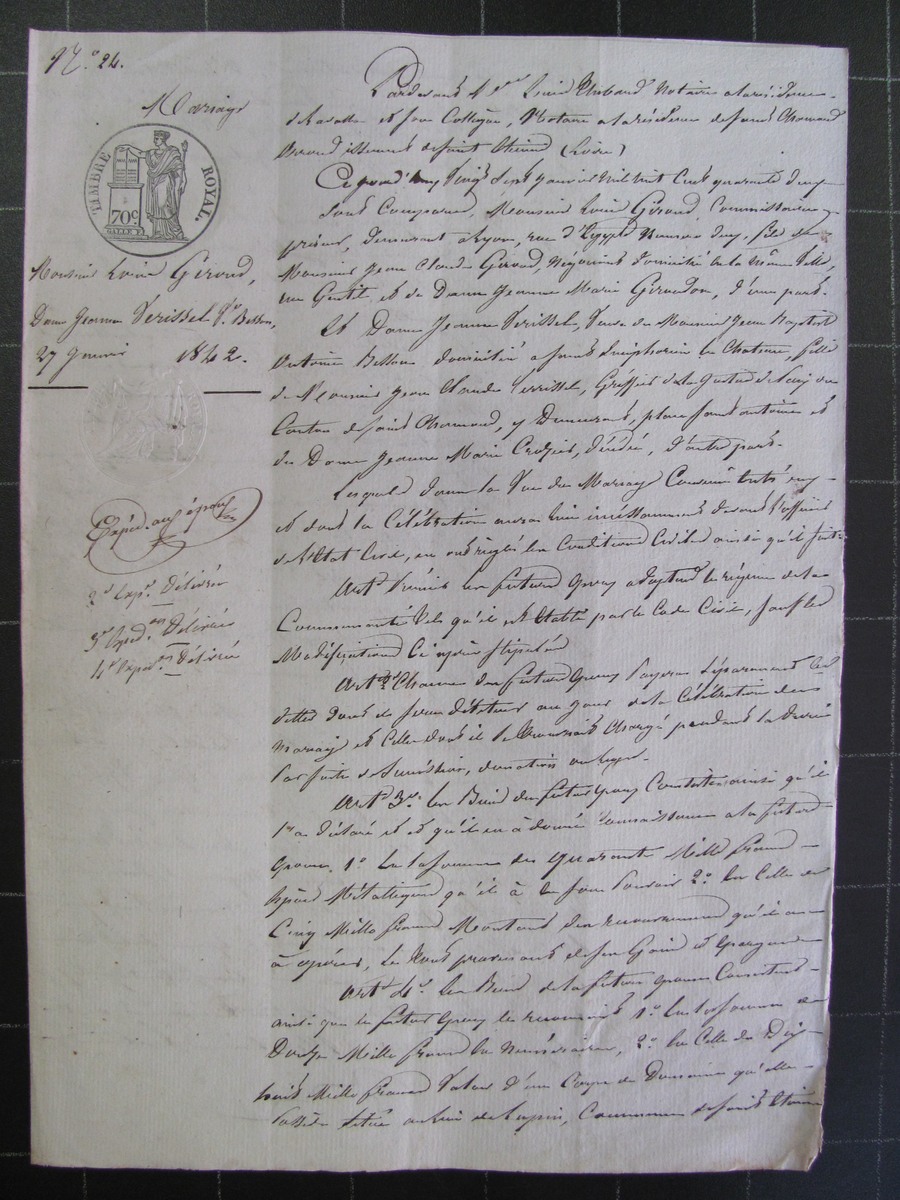 N.° 24.
Mariage
TIMBRE ROYAL.
70c
Monsieur Louis Giroud,
Dame Jeanne Terissel Vve Besson,
27 Janvier 1842.
Expéd. aux époux
2e Expon Délivrée
3e Expédon Délivrée
4e Expédon Délivrée
Pardevant Me Louis Notaire à la résidence
et son Collègue, Notaire à la résidence de Saint Chamond
arrondissement de Saint Etienne (Loire)
Ce jourd'huy vingt sept Janvier mil huit Cent quarante deux
sont Comparus, Monsieur Louis Giroud, Commissaire
priseur, demeurant à Lyon, rue d'Egypte Numéro deux, fils de
Monsieur Jean Claude Giroud, Négociant domicilié en la même Ville,
rue Gentil, et de Dame Jeanne Marie Giraudon, d'une part.
Et Dame Jeanne Terissel, Veuve de Monsieur Jean Baptiste
Antoine Besson domiciliée à Saint Simphorien le Chateau, fille
de Monsieur Jean Claude Terrissel, Greffier de la Justice de Paix du
Canton de Saint Chamond, y Demeurant, place Saint Antoine et
de Dame Jeanne Marie Crozier, décédée, d'autre part.
Lesquels dans la Vue du Mariage Convenu entr'eux
et dont la Célébration aura lieu incessamment devant l'officier
de l'Etat Civil, en ont réglé les Conditions Civiles ainsi qu'il suit:
Art. Premier les futurs époux adoptent le régime de la
Communauté tel qu'il est établi par le Code Civil, sauf les
Modifications Ci après stipulées
Art. 2e Chacun des futurs époux payera séparément les
dettes dont il sera débiteur au jour de la Célébration du
mariage et Celles dont il se trouverait Chargé pendant la durée
par suite de succession, donation ou legs.
Art. 3e. Les Biens du futur époux Consistent ainsi qu'il
l'a déclaré et qu'il en a donné Connaissance à la future
épouse, 1° En la somme de quarante Mille francs
espèces Métalliques qu'il a en son pouvoir 2° En Celle de
Cinq Mille francs Montant des recouvrements qu'il a
à opérer, le tout provenant de ses Gains et épargnes
Art. 4e. Les Biens de la future épouse Consistent
ainsi que le futur époux le reconnait 1° En la somme de
Douze Mille francs en Numéraire, 2° En Celle de Dix
huit Mille francs Valeur d'un Corps de Domaine qu'elle
possède situé au lieu de Commune de Saint Etienne